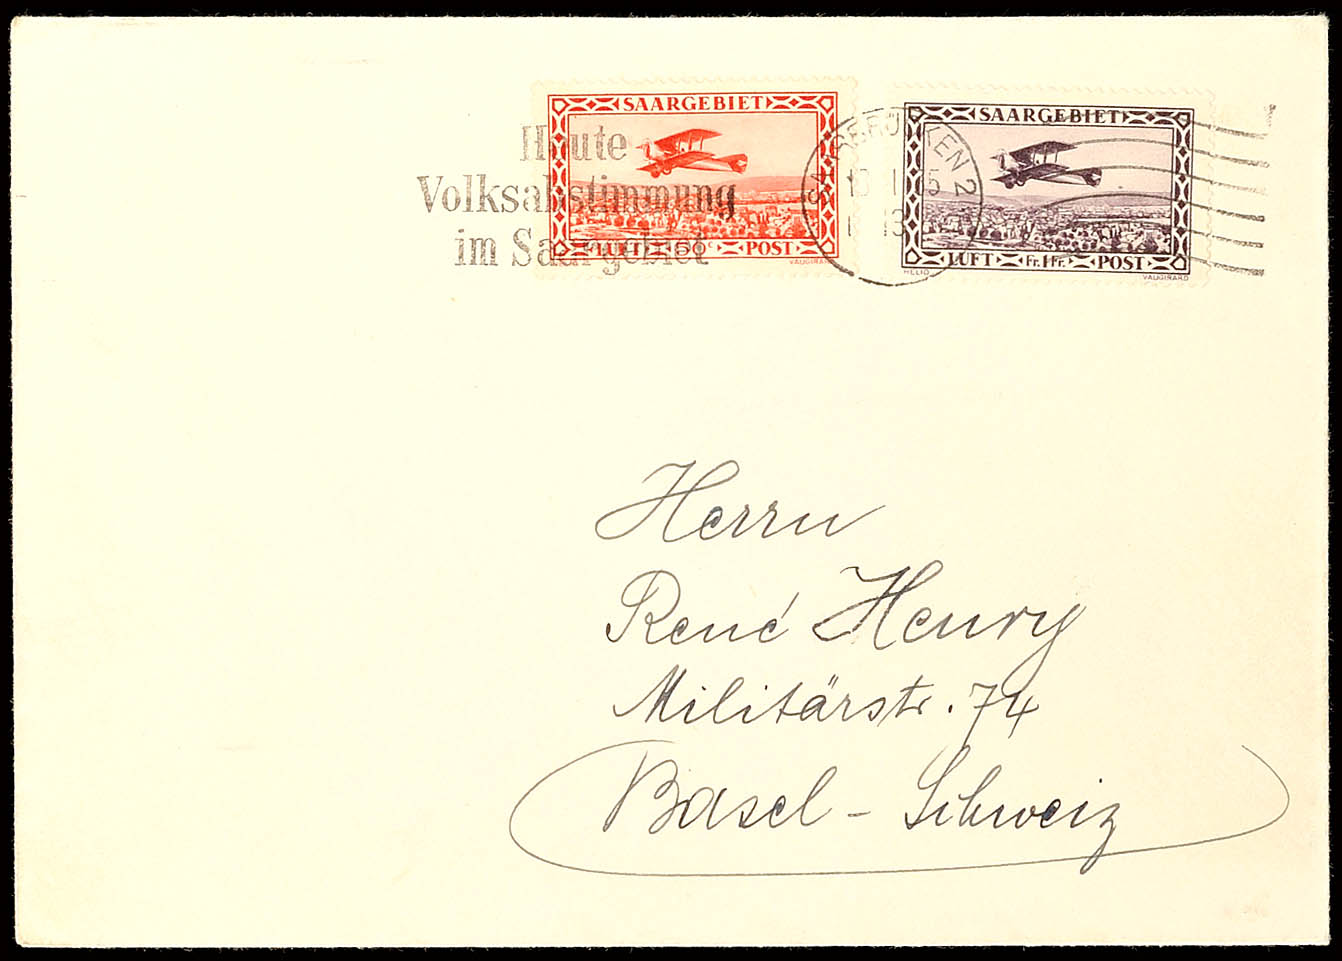 Heute
Volksabstimmung
im Saargebiet
SAARGEBIET
LUFT 50c POST
VAUGIRARD
SAARBRÜCKEN 2
SAARGEBIET
LUFT Fr. 1 Fr. POST
HELIO VAUGIRARD
Herrn
René Henry
Militärstr. 74
Basel – Schweiz